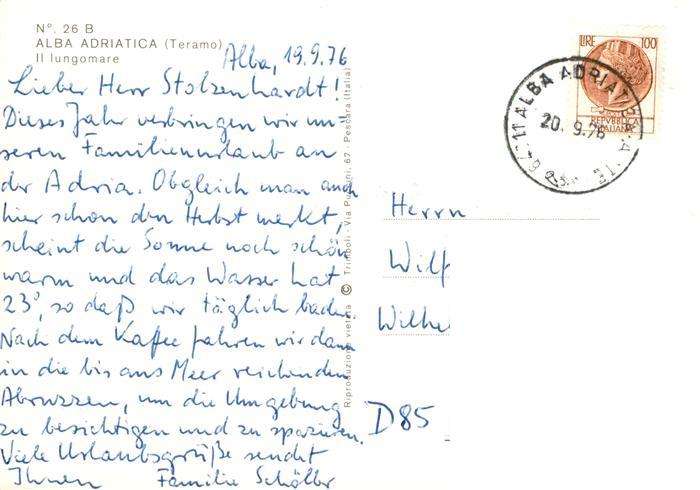 N°. 26 B
ALBA ADRIATICA (Teramo)
Il lungomare
Alba, 19.9.76
Lieber Herr Stolzenhardt!
Dieses Jahr verbringen wir un-
seren Familienurlaub an
der Adria. Obgleich man auch
hier schon den Herbst merkt,
scheint die Sonne noch schön
warm und das Wasser hat
23°, so daß wir täglich baden.
Nach dem Kaffee fahren wir dann
in die bis ans Meer reichenden
Abruzzen, um die Umgebung
zu besichtigen und zu spazieren.
Viele Urlaubsgrüße sendet
Ihnen Familie Schöller
Riproduzione vietata © Trimboli - Via 67, Pescara (Italia)
LIRE 100
REPVBBLICA
ITALIANA
ALBA ADRIATICA
20.9.76
Herrn
Wilf
Wilhel
D85